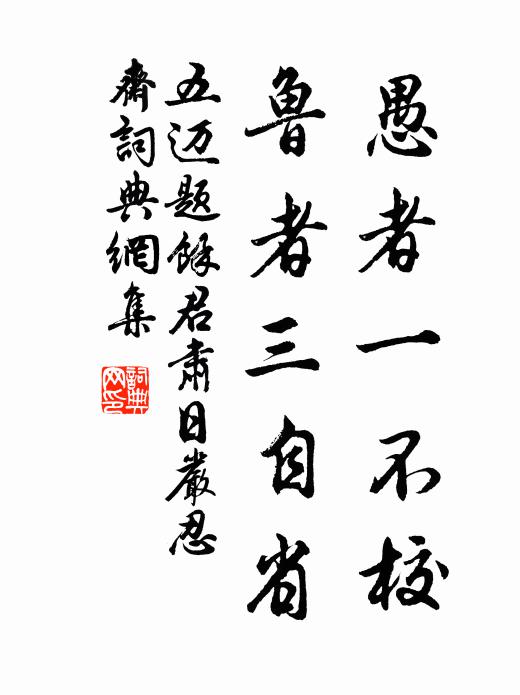 愚者一不校
鲁者三自省
五迈题馀君肃日严忍
斋词典网集
词典网印